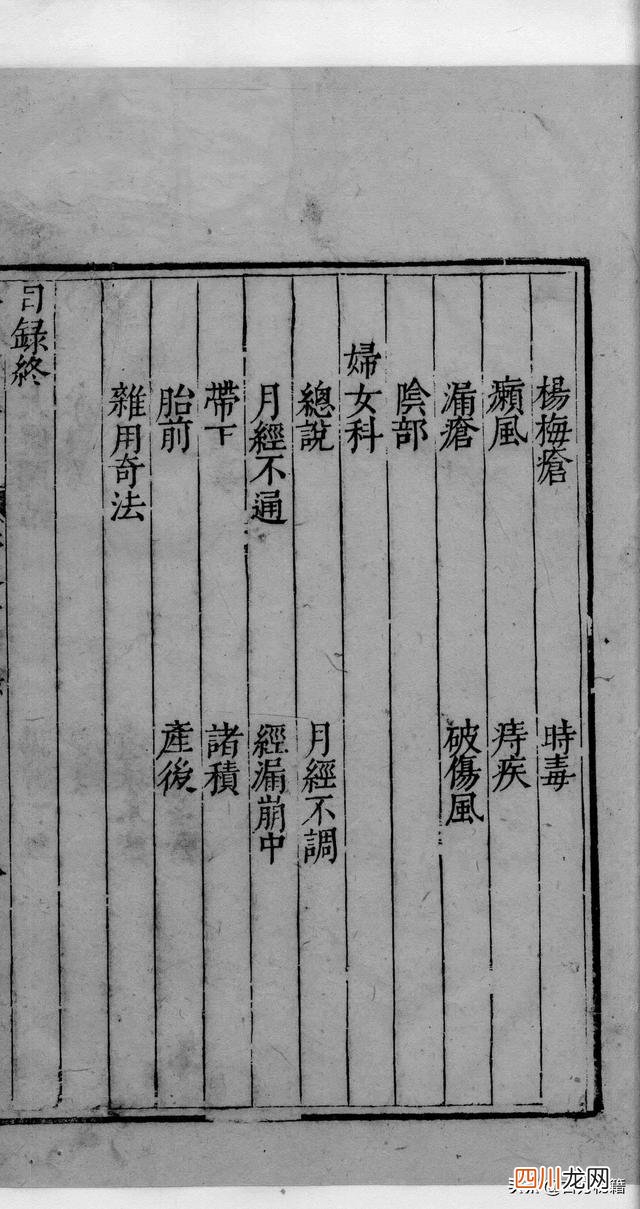 楊梅瘡 時毒
癩風 痔疾
漏瘡 破傷風
陰部
婦女科
總說 月經不調
月經不通 經漏崩中
帶下 諸積
胎前 產後
雜用奇法
目録終
四川龙网